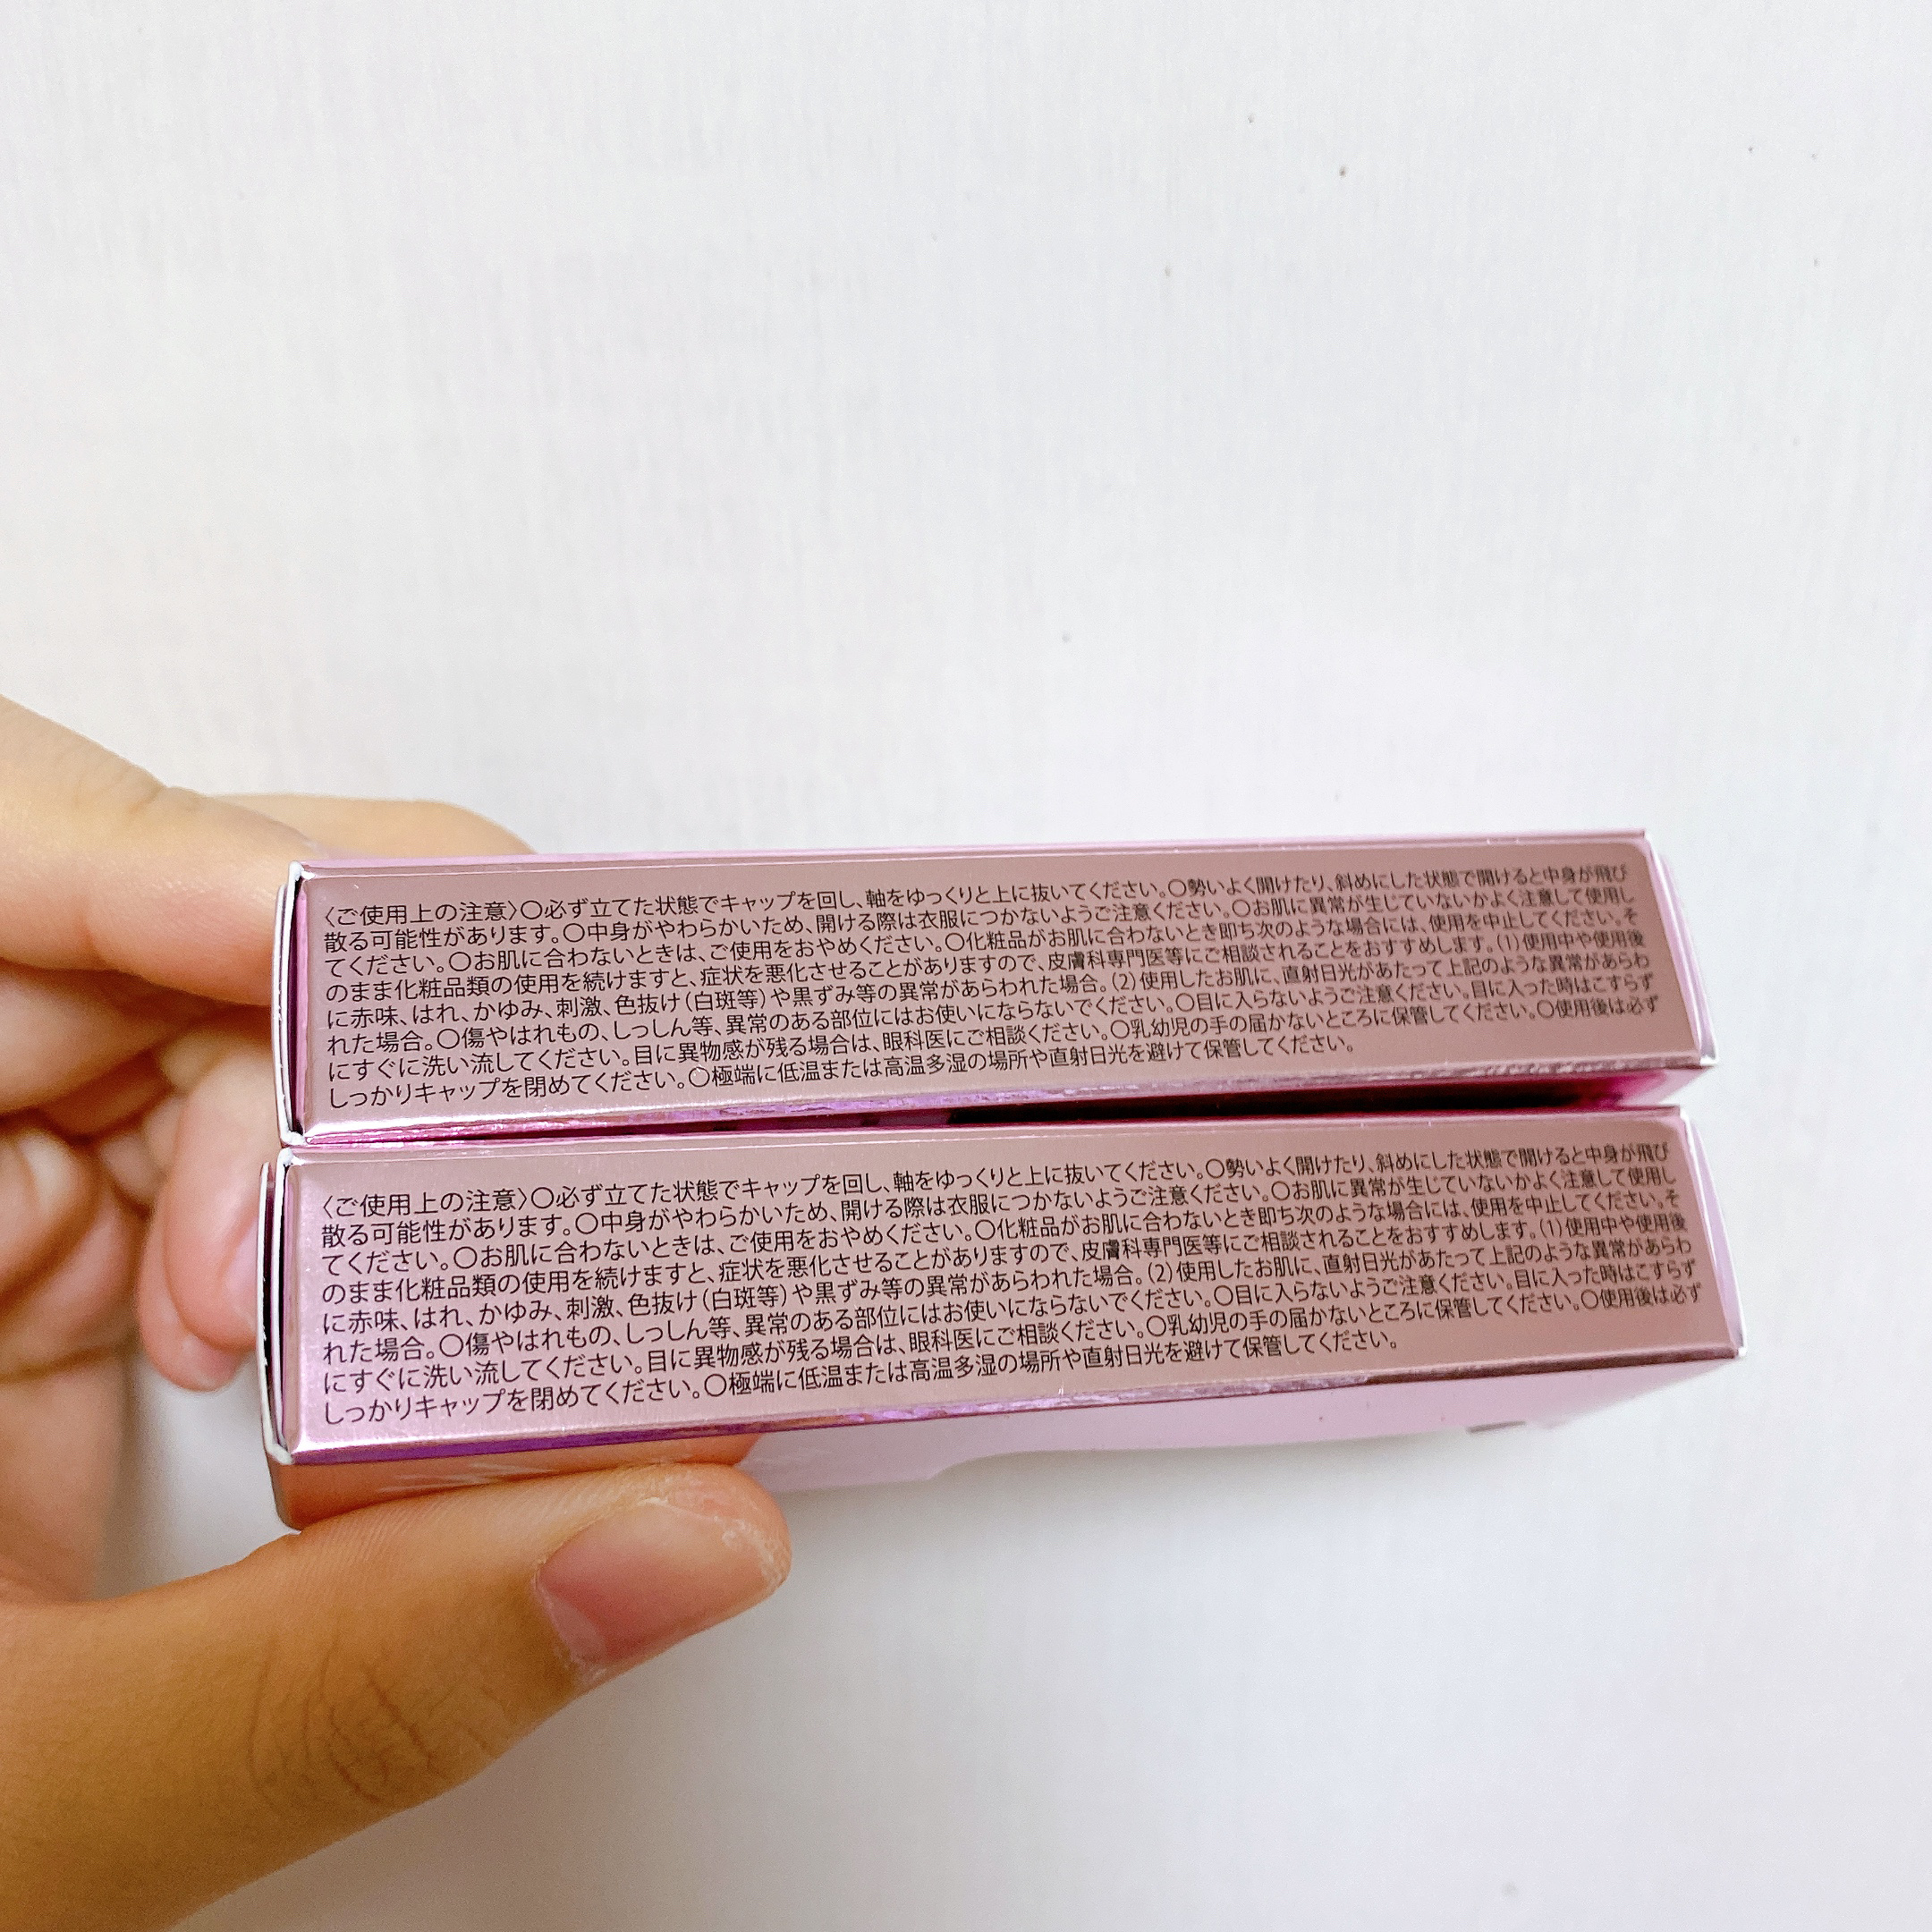 〈ご使用上の注意〉〇必ず立てた状態でキャップを回し、軸をゆっくりと上に抜いてください。〇勢いよく開けたり、斜めにした状態で開けると中身が飛び
散る可能性があります。〇中身がやわらかいため、開ける際は衣服につかないようご注意ください。〇お肌に異常が生じていないかよく注意して使用し
てください。〇お肌に合わないときは、ご使用をおやめください。〇化粧品がお肌に合わないとき即ち次のような場合には、使用を中止してください。そ
のまま化粧品類の使用を続けますと、症状を悪化させることがありますので、皮膚科専門医等にご相談されることをおすすめします。(1)使用中や使用後
に赤味、はれ、かゆみ、刺激、色抜け(白斑等)や黒ずみ等の異常があらわれた場合。(2)使用したお肌に、直射日光があたって上記のような異常があらわ
れた場合。〇傷やはれもの、しっしん等、異常のある部位にはお使いにならないでください。〇目に入らないようご注意ください。目に入った時はこすらず
にすぐに洗い流してください。目に異物感が残る場合は、眼科医にご相談ください。〇乳幼児の手の届かないところに保管してください。〇使用後は必ず
しっかりキャップを閉めてください。〇極端に低温または高温多湿の場所や直射日光を避けて保管してください。
〈ご使用上の注意〉〇必ず立てた状態でキャップを回し、軸をゆっくりと上に抜いてください。〇勢いよく開けたり、斜めにした状態で開けると中身が飛び
散る可能性があります。〇中身がやわらかいため、開ける際は衣服につかないようご注意ください。〇お肌に異常が生じていないかよく注意して使用し
てください。〇お肌に合わないときは、ご使用をおやめください。〇化粧品がお肌に合わないとき即ち次のような場合には、使用を中止してください。そ
のまま化粧品類の使用を続けますと、症状を悪化させることがありますので、皮膚科専門医等にご相談されることをおすすめします。(1)使用中や使用後
に赤味、はれ、かゆみ、刺激、色抜け(白斑等)や黒ずみ等の異常があらわれた場合。(2)使用したお肌に、直射日光があたって上記のような異常があらわ
れた場合。〇傷やはれもの、しっしん等、異常のある部位にはお使いにならないでください。〇目に入らないようご注意ください。目に入った時はこすらず
にすぐに洗い流してください。目に異物感が残る場合は、眼科医にご相談ください。〇乳幼児の手の届かないところに保管してください。〇使用後は必ず
しっかりキャップを閉めてください。〇極端に低温または高温多湿の場所や直射日光を避けて保管してください。